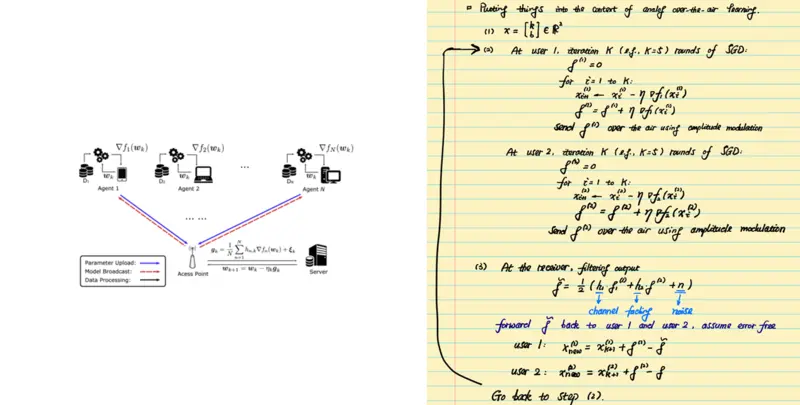 ∇f₁(wₖ)
∇f₂(wₖ)
∇f_N(wₖ)
D₁
wₖ
D₂
wₖ
...
wₖ
Agent 1
Agent 2
Agent N
... ...
gₖ = 1/N ∑ₙ₌₁ᴺ hₙ,ₖ∇fₙ(wₖ) + ξₖ
wₖ₊₁ = wₖ − ηₖgₖ
Acess Point
Server
Parameter Upload:
Model Broadcast:
Data Processing:
Putting things into the context of analog over-the-air learning.
(1) x = [k b] ∈ ℝ²
(2) At user 1, iteration K (e.g., K=5) rounds of SGD:
f⁽¹⁾ = 0
for i=1 to K:
xᵢ₊₁⁽¹⁾ ← xᵢ⁽¹⁾ − η ∇f₁(xᵢ⁽¹⁾)
f⁽¹⁾ = f⁽¹⁾ + η ∇f₁(xᵢ⁽¹⁾)
Send f⁽¹⁾ over the air using amplitude modulation
At user 2, iteration K (e.g., K=5) rounds of SGD:
f⁽²⁾ = 0
for i=1 to K:
xᵢ₊₁⁽²⁾ ← xᵢ⁽²⁾ − η ∇f₂(xᵢ⁽²⁾)
f⁽²⁾ = f⁽²⁾ + η ∇f₂(xᵢ⁽²⁾)
Send f⁽²⁾ over the air using amplitude modulation
(3) At the receiver, filtering output
f̃ = 1/2 (h₁ · f⁽¹⁾ + h₂ · f⁽²⁾ + n)
channel fading noise
forward f̃ back to user 1 and user 2, assume error free
user 1: x_new⁽¹⁾ = x_K+1⁽¹⁾ + f⁽¹⁾ − f̃
user 2: x_new⁽²⁾ = x_K+1⁽²⁾ + f⁽²⁾ − f
Go back to step (2).